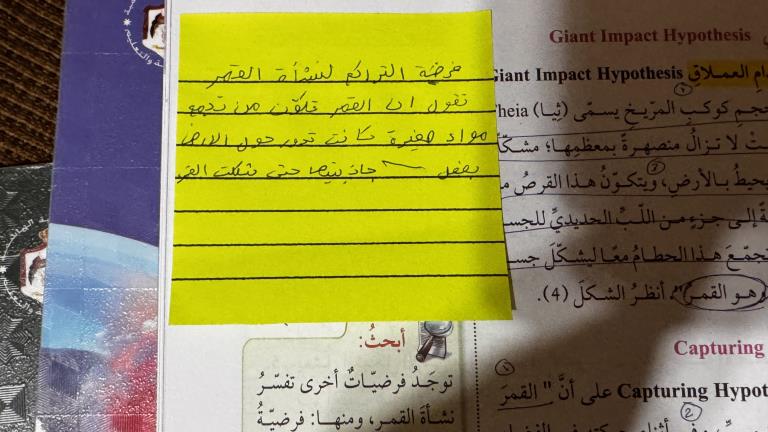 فرضية التراكم لنشأة القمر
تقول ان القمر تكون من تجمع
مواد صغيرة كانت تدور حول الارض
بفعل جاذبيتها حتى شكلت القمر
Giant Impact Hypothesis
دام العملاق Giant Impact Hypothesis
حجم كوكب المرّيخ يسمّى (ثِيا) Theia
تْ لا تزالُ منصهرةً بمعظمِها؛ مشكّ
يحيطُ بالأرضِ، ويتكوّنُ هذا القرصُ م
ةً إلى جزءٍ من اللّبِّ الحديديِّ للجس
تجمّعَ هذا الحطامُ معًا ليشكّلَ جس
وهو القمرُ، أنظرُ الشكلَ (4).
أبحثُ:
توجَدُ فرضيّاتٌ أخرى تفسّرُ
نشأةَ القمرِ، ومنها: فرضيّةُ
Capturing
Capturing Hypot على أنَّ "القمرَ